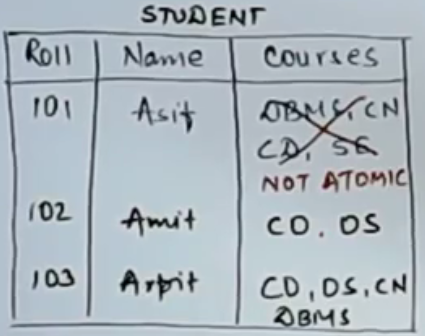 STUDENT
Roll Name Courses
101 Asit DBMS, CN
CD, SE
NOT ATOMIC
102 Amit CO. OS
103 Arpit CD, OS, CN
DBMS